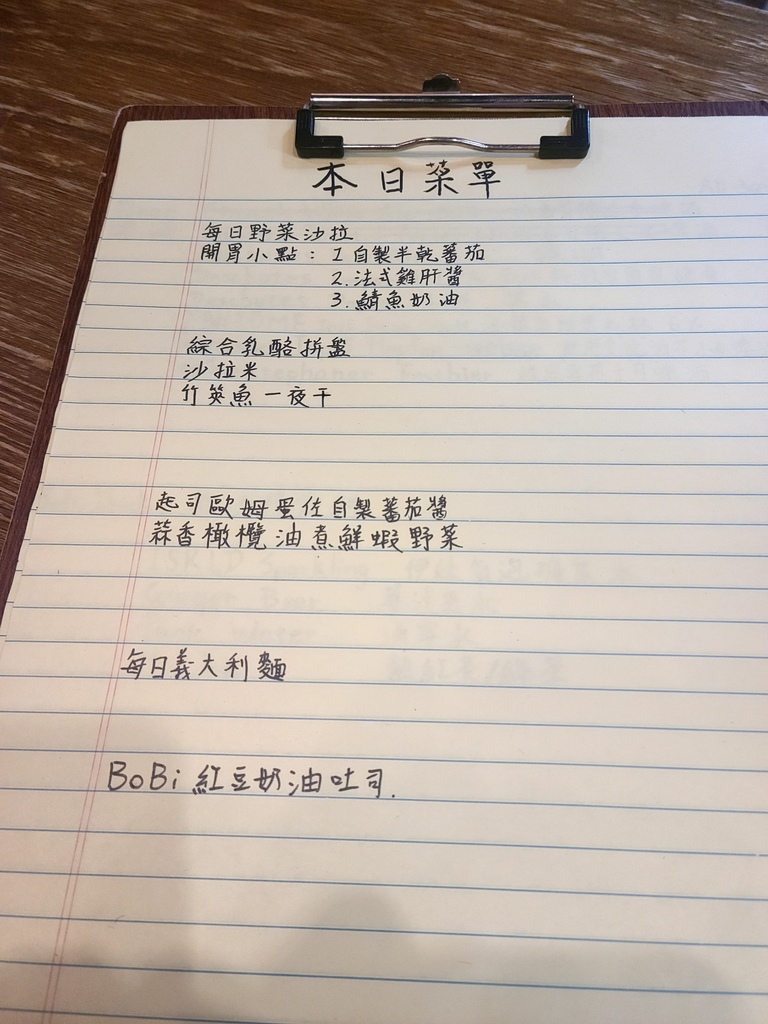 本日菜單
每日野菜沙拉
開胃小點：1 自製半乾蕃茄
2. 法式雞肝醬
3. 鯖魚奶油
綜合乳酪拼盤
沙拉米
竹筴魚一夜干
起司歐姆蛋佐自製蕃茄醬
蒜香橄欖油煮鮮蝦野菜
每日義大利麵
BoBi 紅豆奶油吐司.